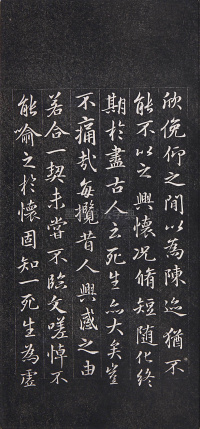 欣俛仰之間以為陳迹猶不
能不以之興懷况脩短随化終
期於盡古人云死生亦大矣豈
不痛哉每攬昔人興感之由
若合一契未嘗不臨文嗟悼不
能喻之於懷固知一死生為虛